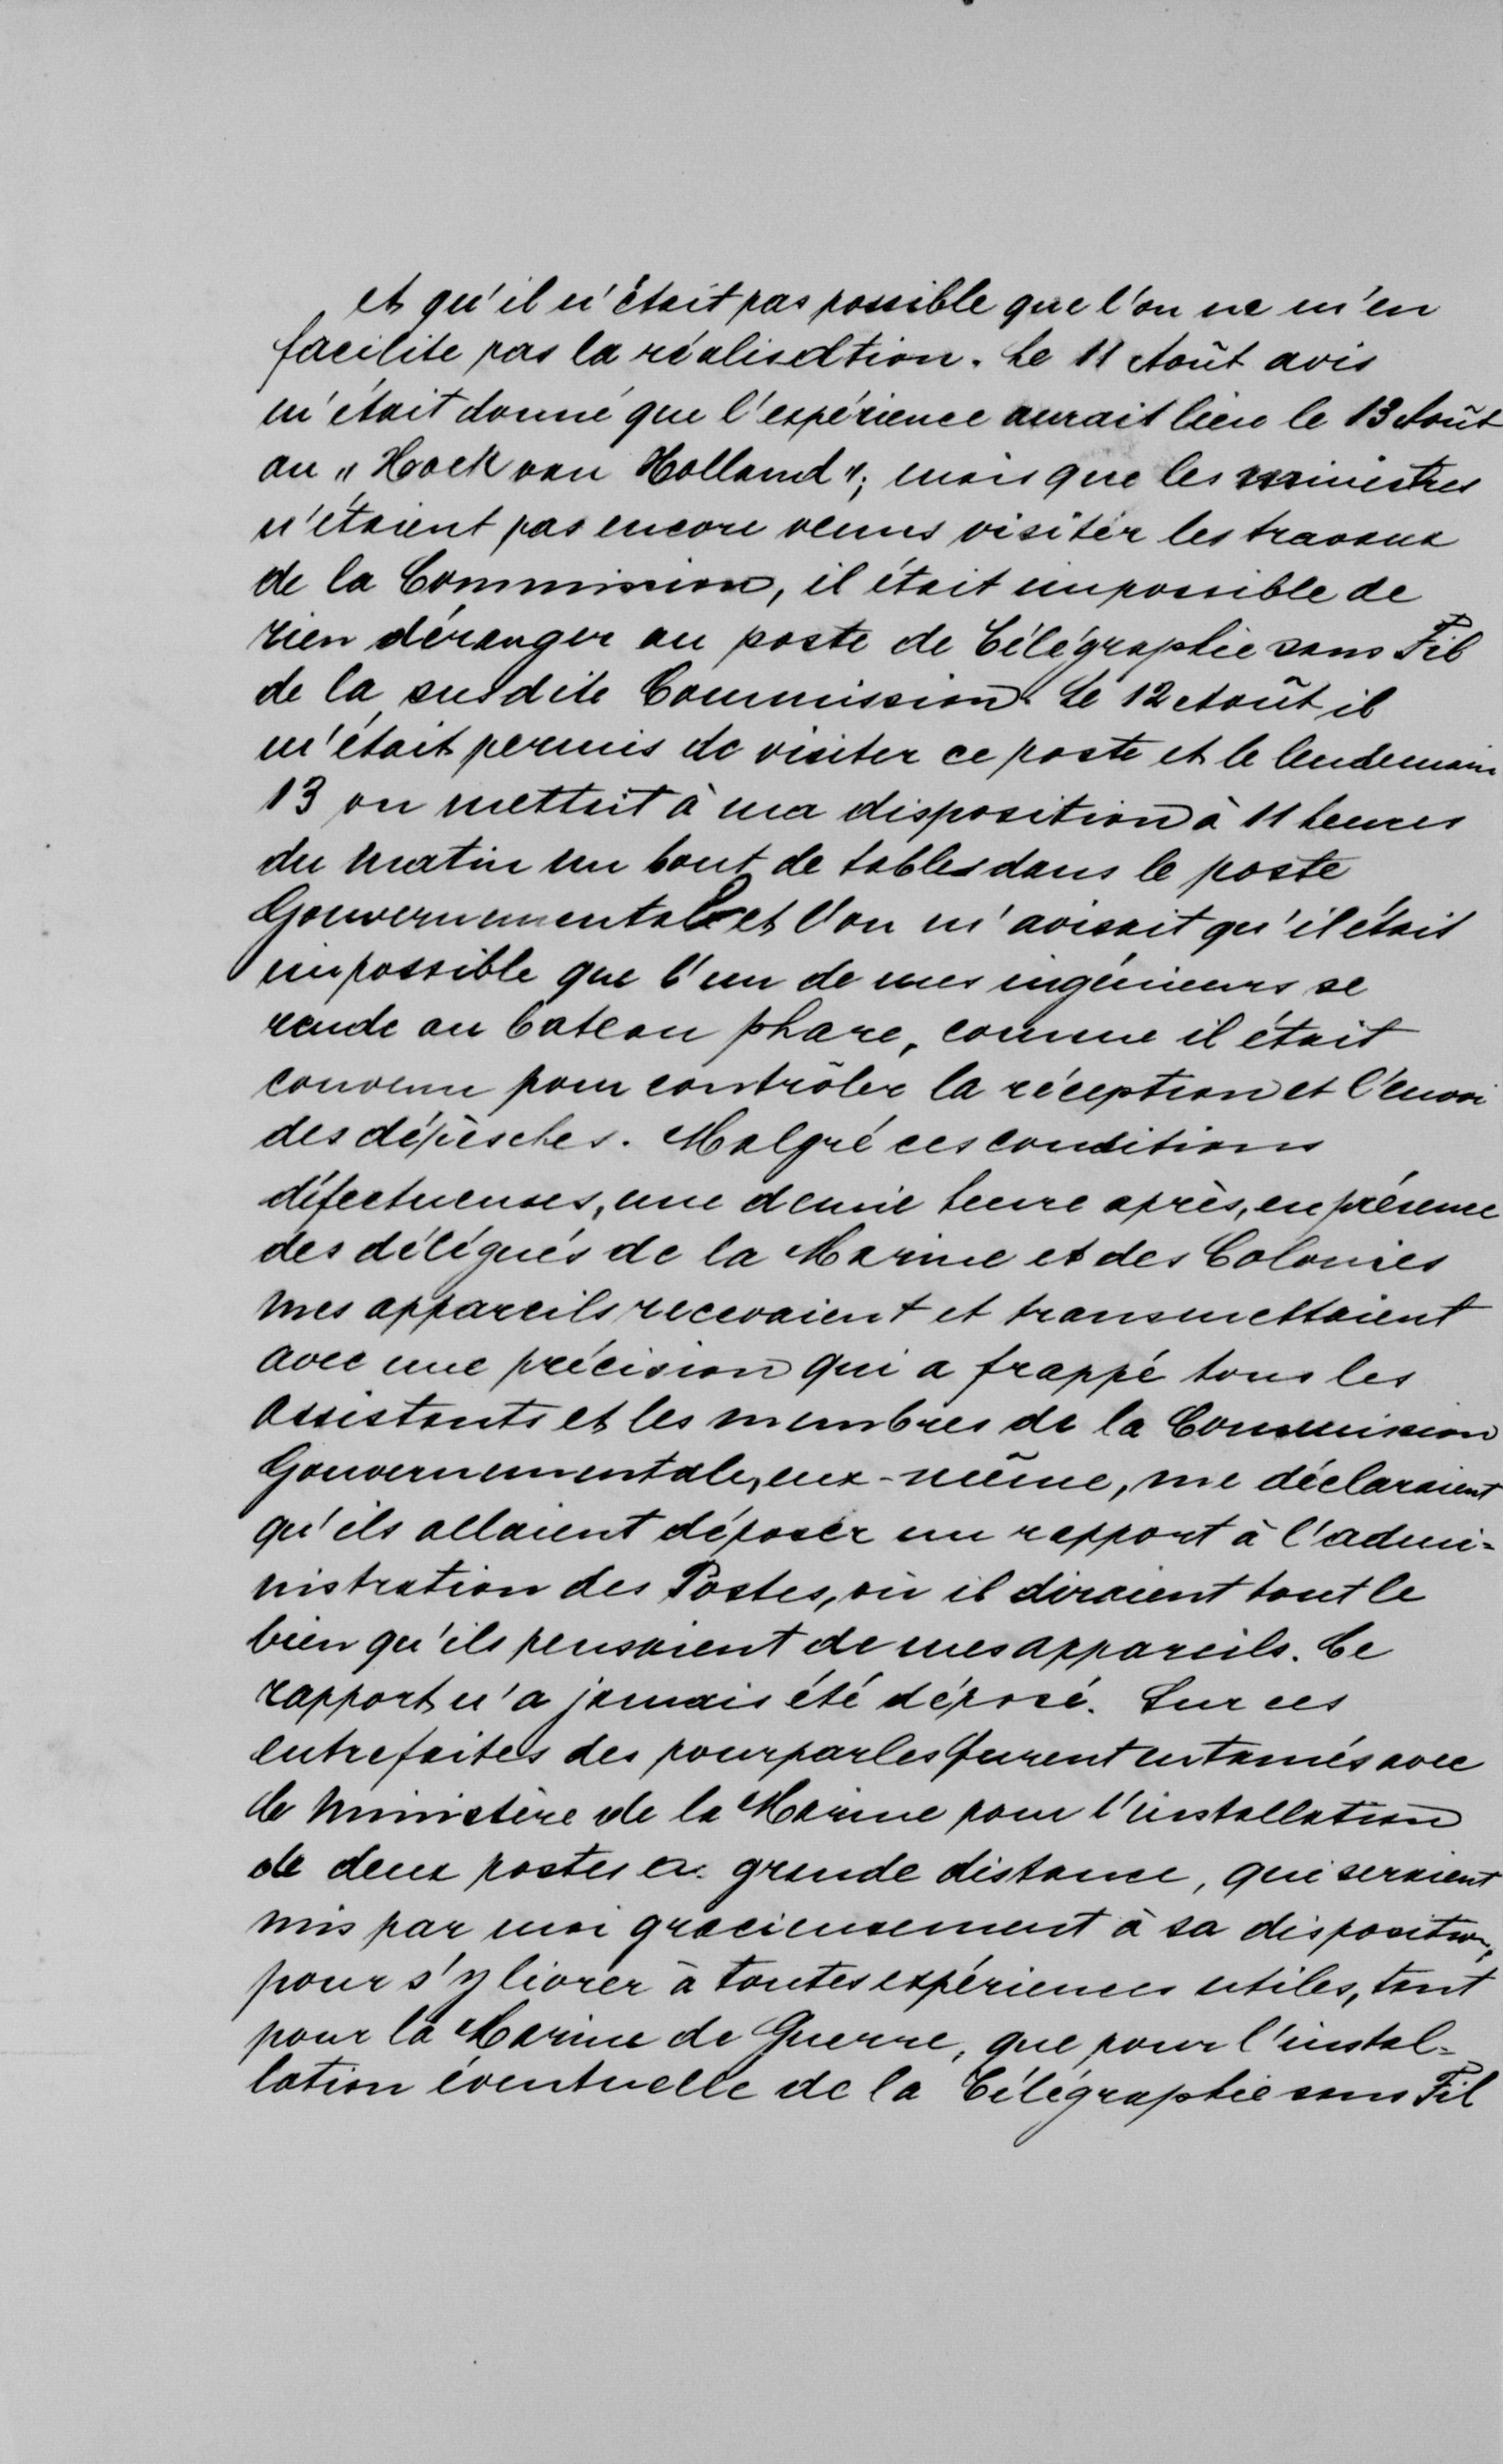 et qu'il n'était pas possible que l'on ne m'en
facilite pas la réalisation. Le 11 Août avis
m'était donné que l'expérience aurait lieu le 13 Août
au „Hoek van Holland"; mais que les ministres
n'étaient pas encore venus visiter les travaux
de la Commission, il était impossible de
rien déranger au poste de Télégraphie sans Fil
de la susdite Commission. Le 12 Août il
m'était permis de visiter ce poste et le lendemain
13 on mettait à ma disposition à 11 heures
du matin un bout de table dans le poste
Gouvernemental et l'on m'avisait qu'il était
impossible que l'un de mes ingénieurs se
rende au bateau phare, comme il était
convenu pour contrôler la réception et l'envoi
des dépèsches. Malgré ces conditions
défectueuses, une demie heure après, en présence
des délégués de la Marine et des Colonies
mes appareils recevaient et transmettaient
avec une précision qui a frappé tous les
assistants et les membres de la Commission
Gouvernementale, eux-même, me déclaraient
qu'ils allaient déposer un rapport à l'admi-
nistration des Postes, où il diraient tout le
bien qu'ils pensaient de mes appareils. Ce
rapport n'a jamais été déposé. Sur ces
entrefaites des pourparles furent entamés avec
le Ministère de la Marine pour l'installation
de deux postes à grande distance, qui seraient
mis par moi gracieusement à sa disposition,
pour s'y livrer à toutes expériences utiles, tant
pour la Marine de Guerre, que pour l'instal-
lation éventuelle de la Télégraphie sans Fil